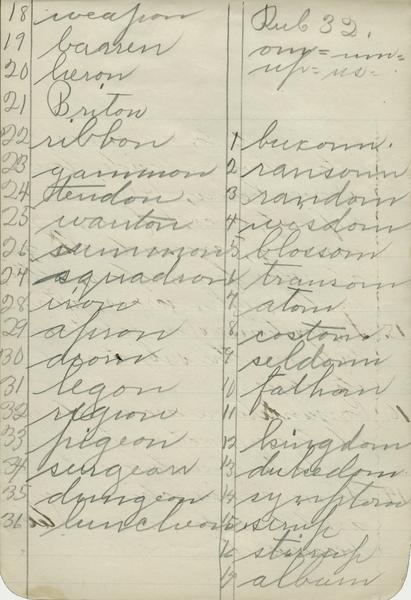 18 weapon
19 baaren
20 heron
21 Briton
22 ribbon
23 gammon
24 tendon
25 wanton
26 summon
27 squadson
28 iron
29 apron
30 acorn
31 legon
32 region
33 pigeon
34 surgeon
35 dungeon
36 luncheon
Rub 32.
om= um=
up= us=
1 buxom.
2 ransom
3 random
4 wisdom
5 blossom
6 transom
7 atom
8 costom.
9 seldom
10 fathom
11
12 kingdom
13 dukedom
14 symptom
15 sirup
16 stirrup
17 album